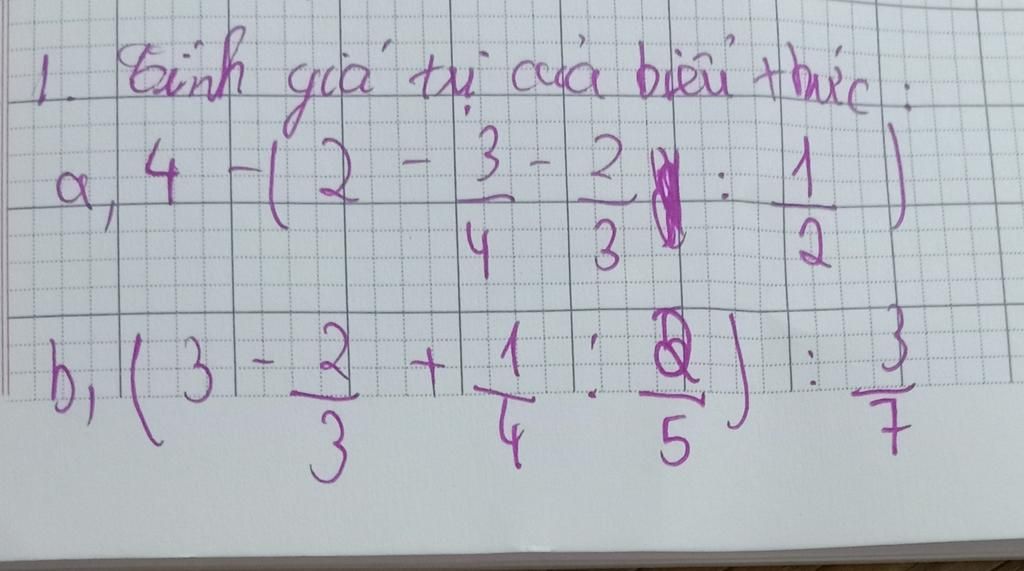 1. Tính giá tụ của biểu thức:
a, 4 - ( 2 - 3/4 - 2/3 : 1/2 )
b, ( 3 - 2/3 + 1/4 : 2/5 ) : 3/7